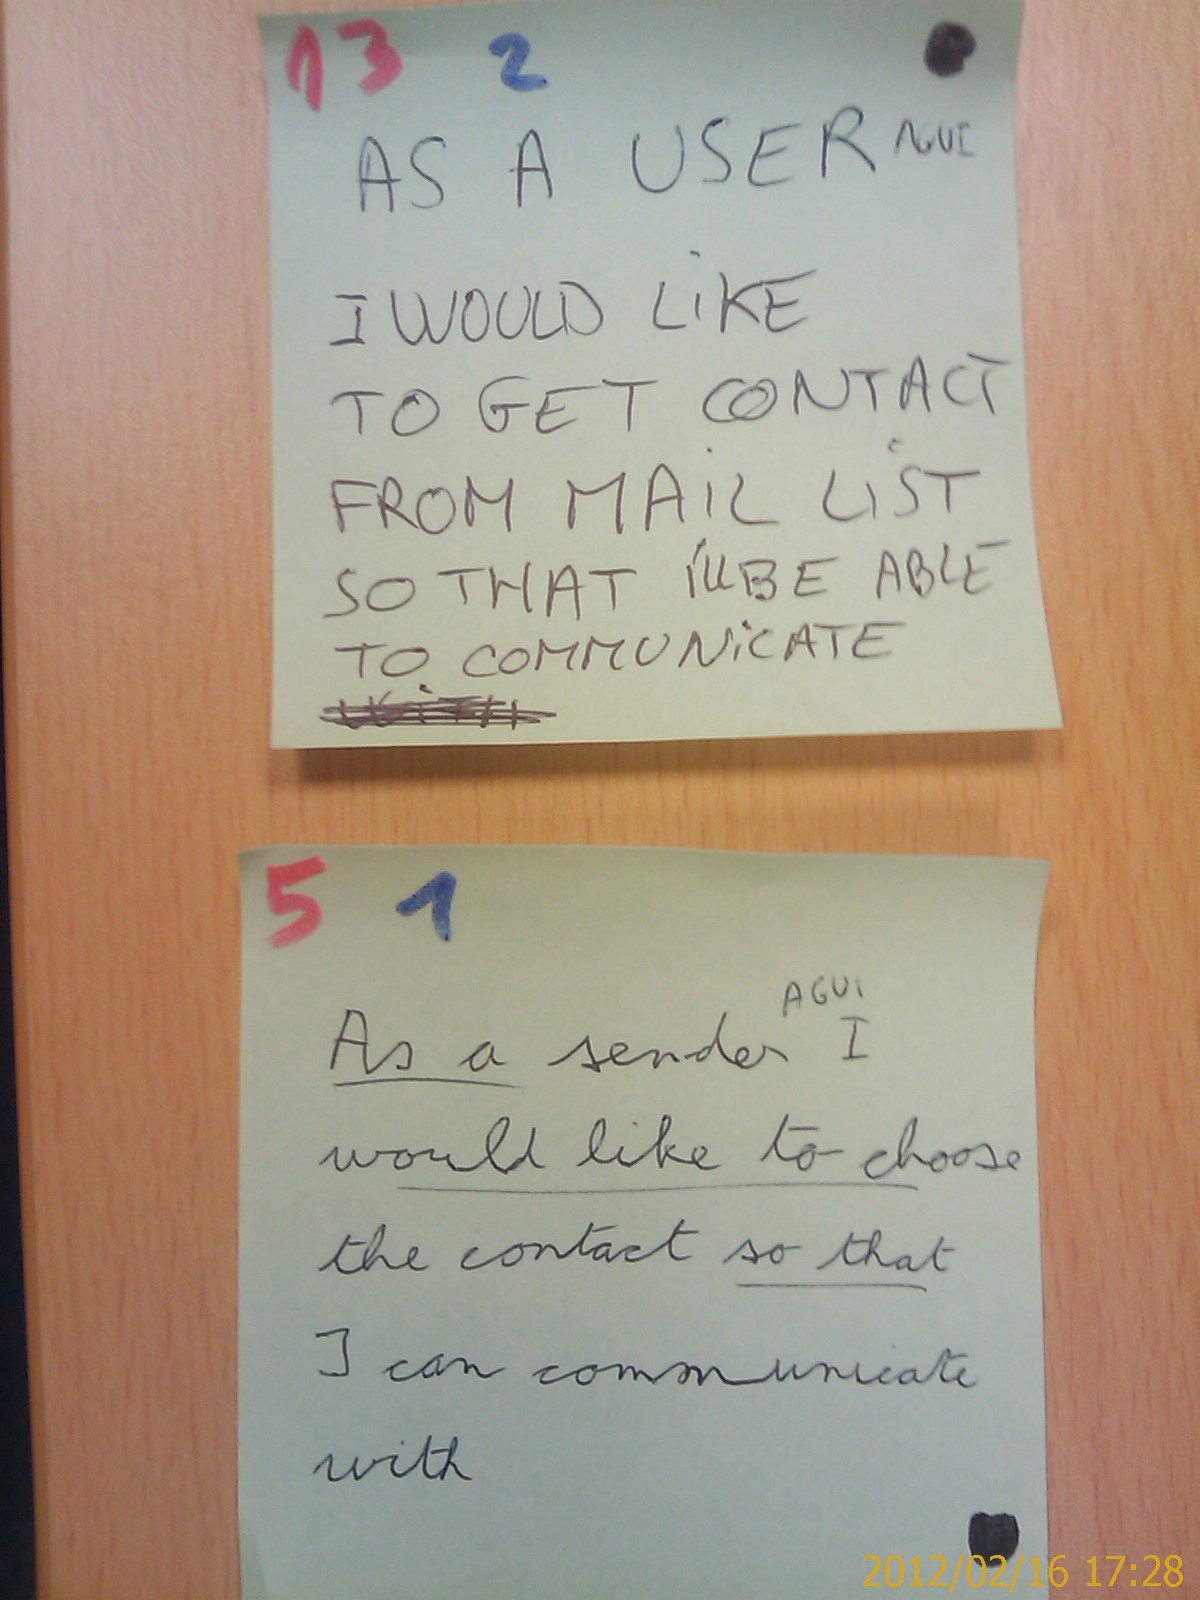 13 2
AS A USER AGUI
I WOULD LiKE
TO GET CONTACT
FROM MAiL LiST
SO THAT i'll BE ABLE
TO COMMUNiCATE
5 1
AGUI
As a sender I
would like to choose
the contact so that
I can communicate
with
2012/02/16 17:28